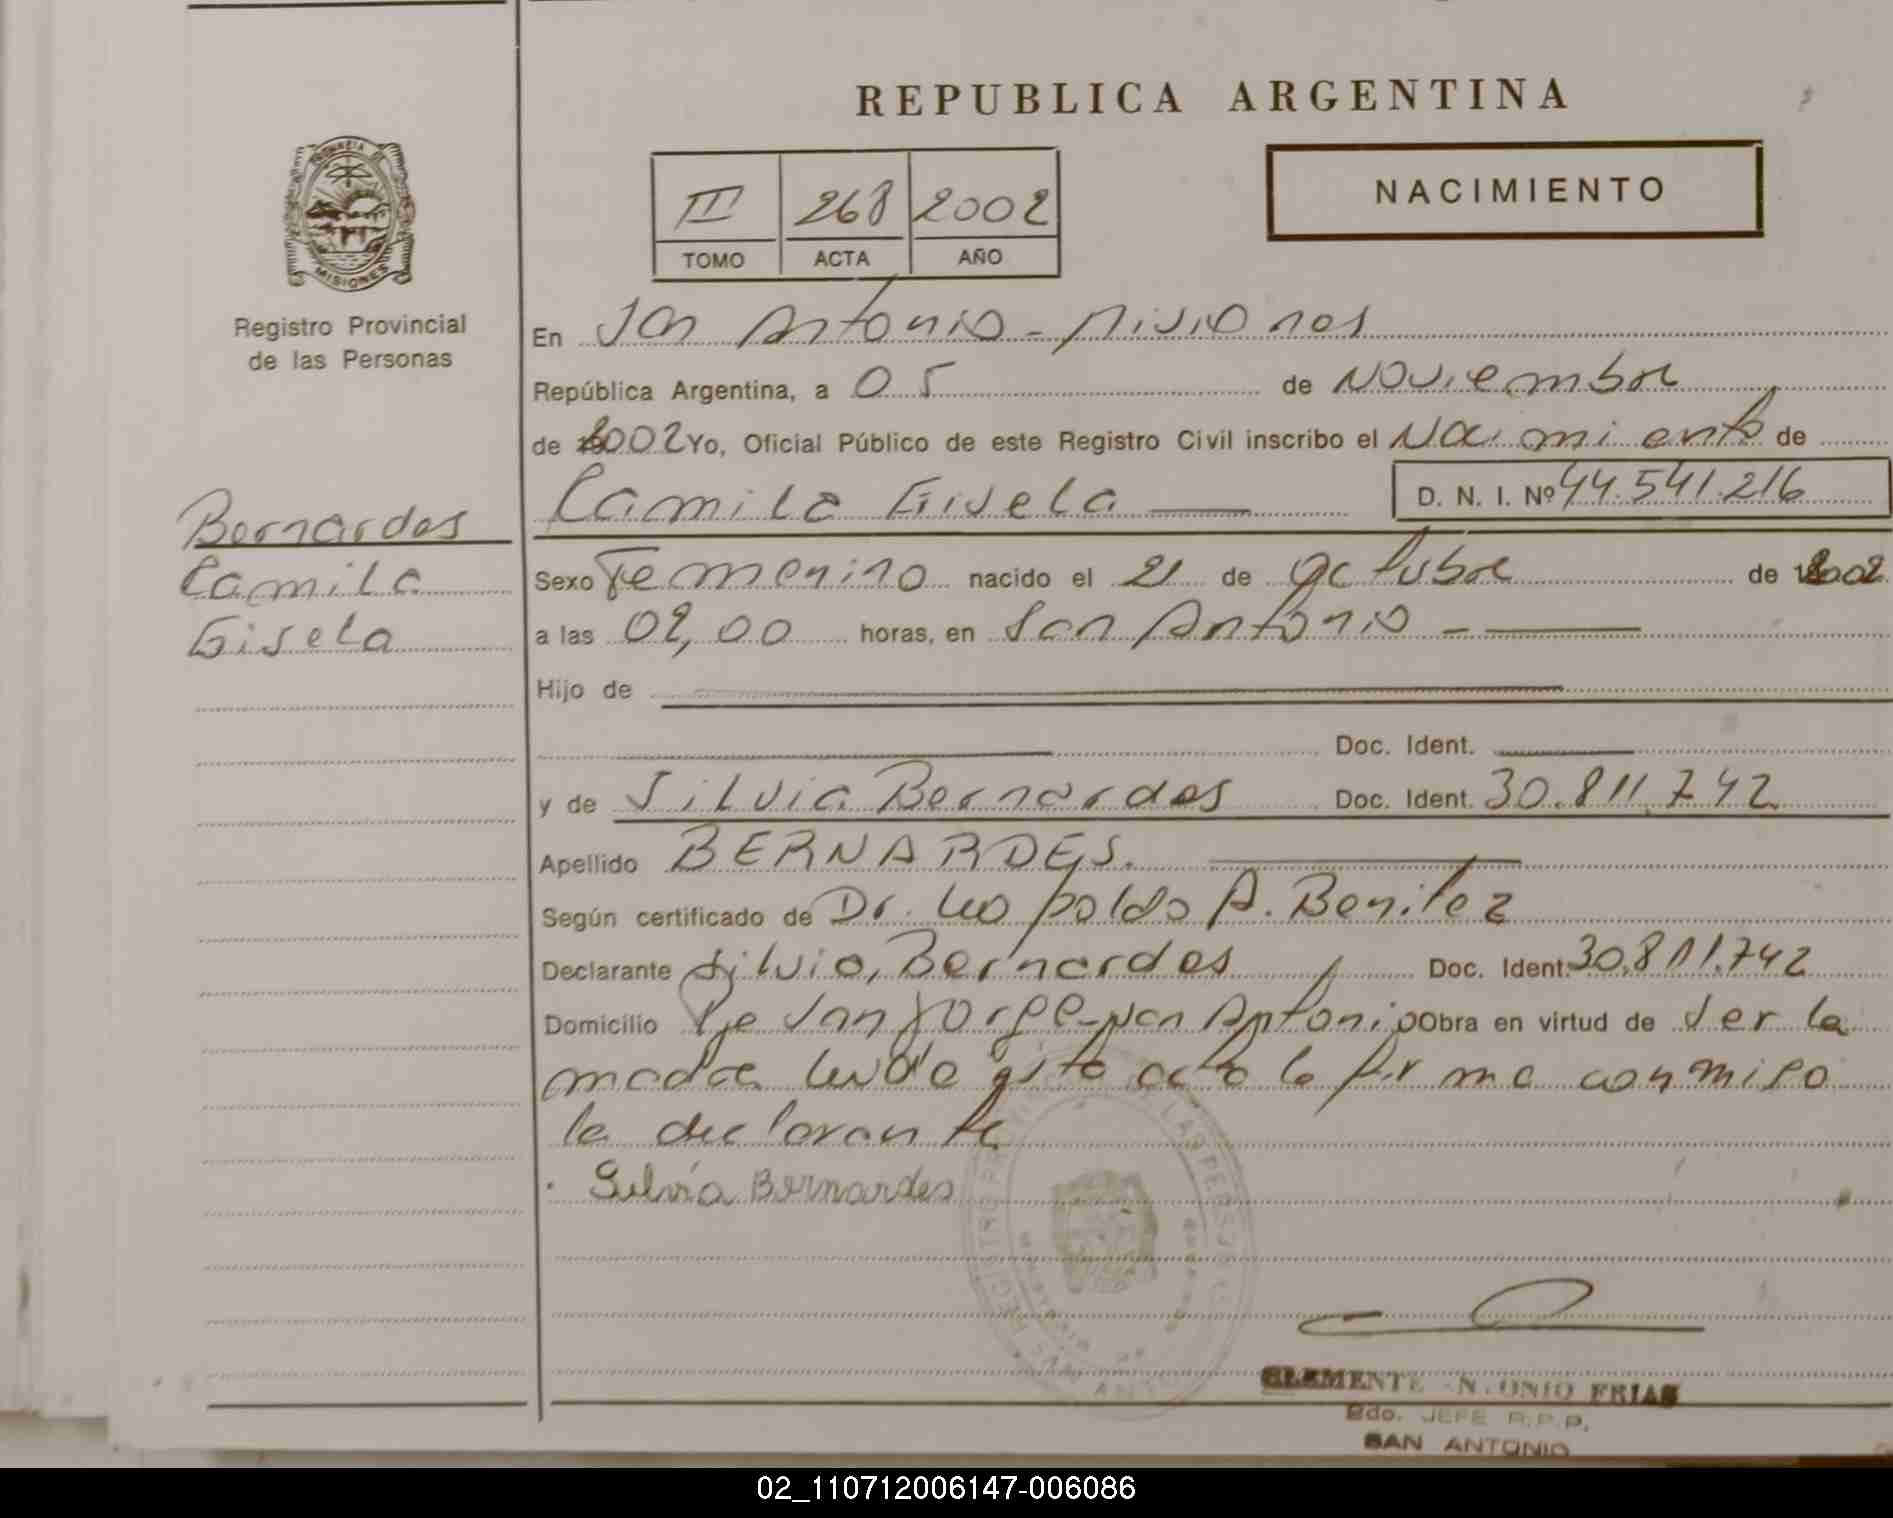 REPUBLICA ARGENTINA
NACIMIENTO
III 268 2002
TOMO ACTA AÑO
PROVINCIA DE
MISIONES
Registro Provincial
de las Personas
Bernardes
Camila
Gisela
En San Antonio - Misiones
República Argentina, a 05 de Noviembre
de 2002 Yo, Oficial Público de este Registro Civil inscribo el Nacimiento de
Camila Gisela D. N. I. Nº 44.541.216
Sexo Femenino nacido el 21 de Octubre de 2002
a las 02,00 horas, en San Antonio -
Hijo de
Doc. Ident.
y de Silvia Bernardes Doc. Ident. 30.811.742
Apellido BERNARDES.
Según certificado de Dr. Leopoldo A. Benitez
Declarante Silvia, Bernardes Doc. Ident. 30.811.742
Domicilio Pje San Jorge - San Antonio Obra en virtud de ser la
madre leida esta acta la firma conmigo
la declarante
Silvia Bernardes
CLEMENTE ANTONIO FRIAS
JEFE R.P.P.
SAN ANTONIO
02_110712006147-006086